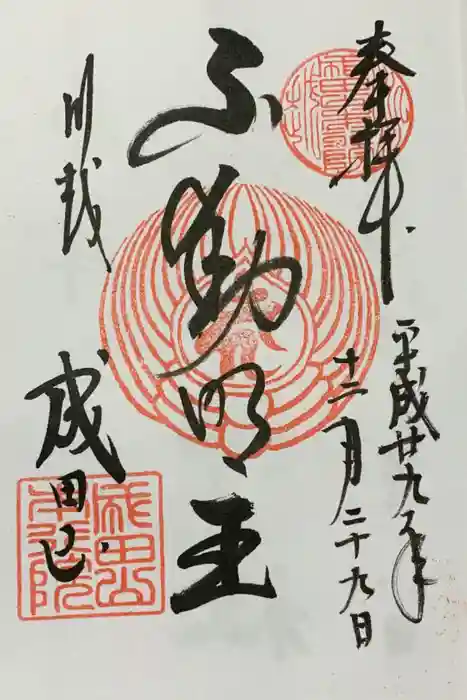 奉拝
平成廿九年
十二月二十九日
不動明王
川越
成田山